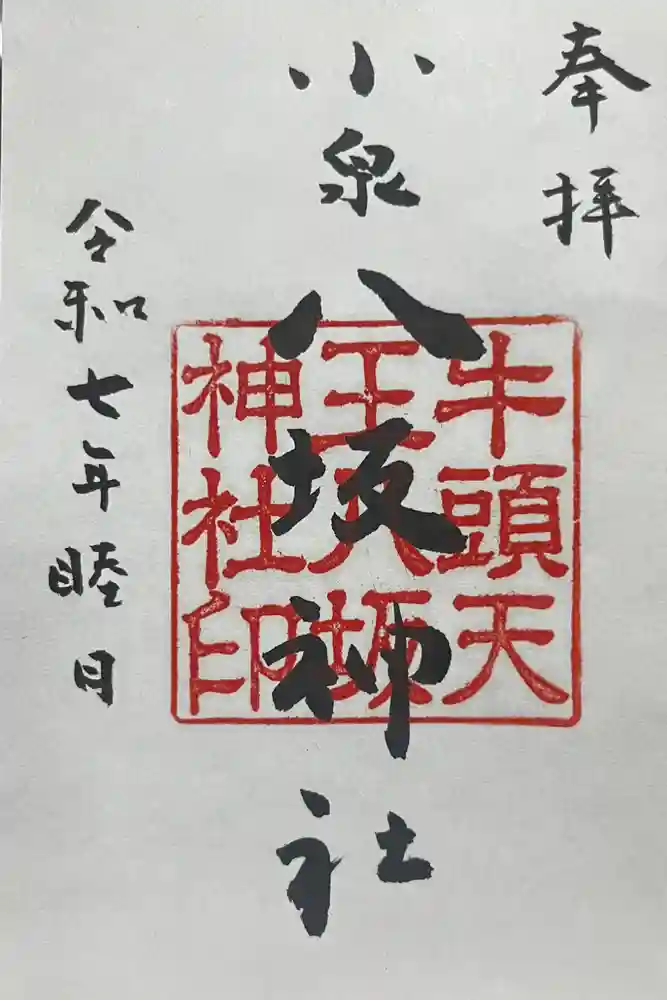 奉拝
小泉八坂神社
牛頭天
王八坂
神社印
令和七年睦日